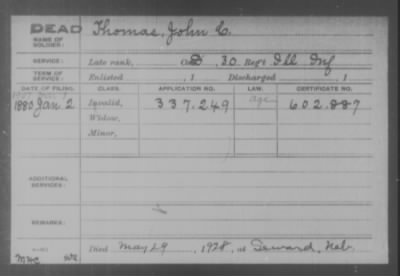 DEAD Thomas, John C.
NAME OF SOLDIER:
SERVICE: Late rank, Co. D, 30 Reg't Ill Inf
TERM OF SERVICE: Enlisted , 1 Discharged , 1
DATE OF FILING. CLASS. APPLICATION NO. LAW. CERTIFICATE NO.
1880 Jan 2 Invalid, 337.249 age 602.887
Widow,
Minor,
ADDITIONAL SERVICES:
REMARKS:
Died May 29, 1928, at Seward, Neb.